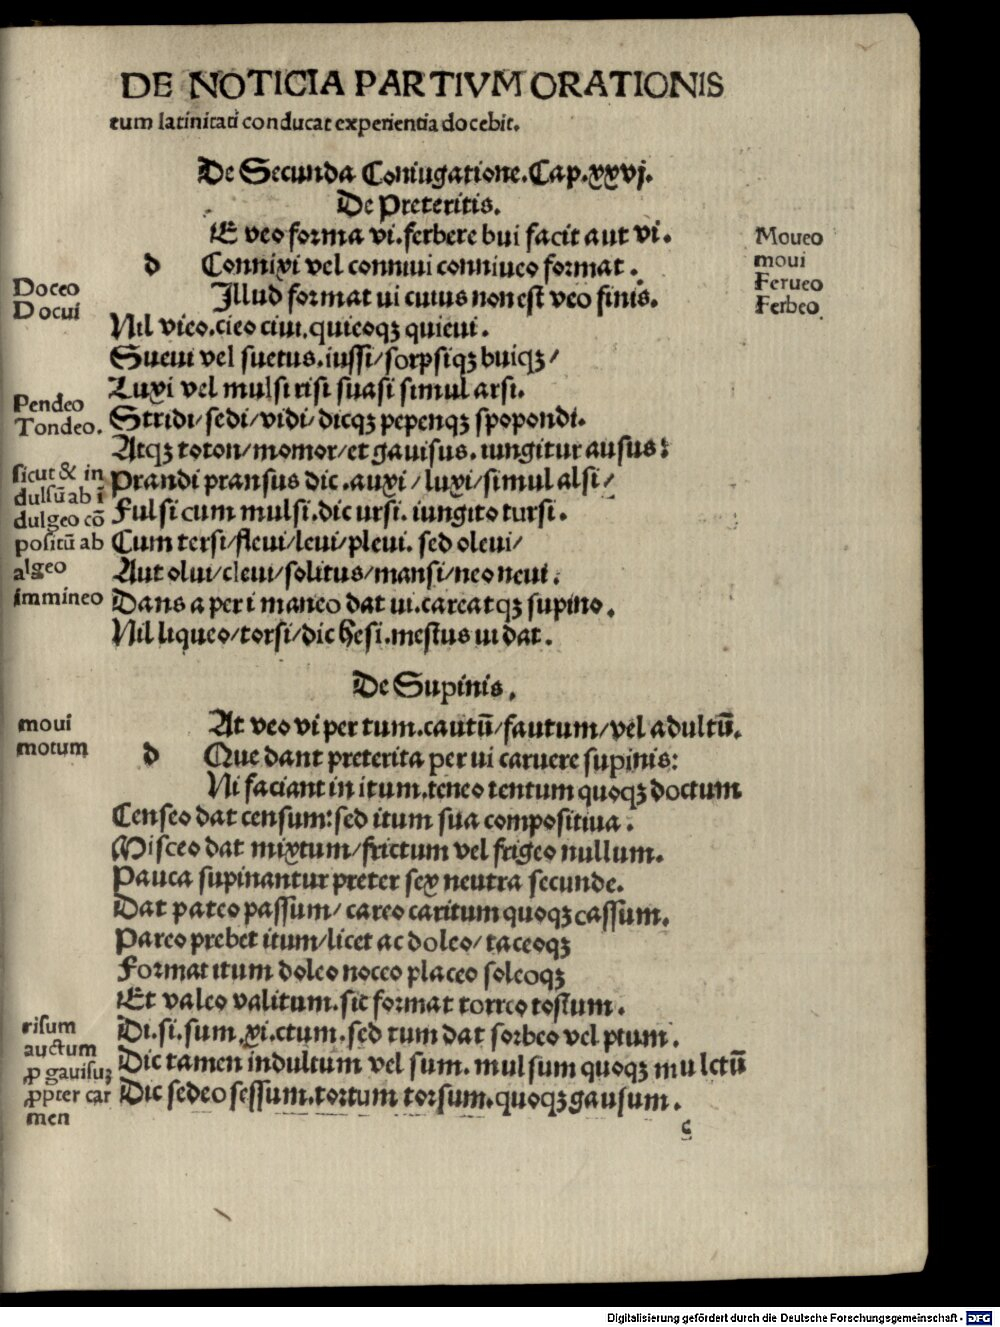 DE NOTICIA PARTIVM ORATIONIS
tum latinitati conducat experientia docebit.
De Secunda Coniugatione. Cap. xxvj.
De Preteritis.
E veo forma vi. ferbere bui facit aut vi.
d Connixi vel conniui conniueo format.
Illud format ui cuius non est veo finis.
Nil vieo. cieo ciui. quieoqꝫ quieui.
Sueui vel suetus. iussi/ sorpsiqꝫ buiqꝫ/
Luxi vel mulsi risi suasi simul arsi.
Stridi/ sedi/ vidi/ dicqꝫ pepenqꝫ spopondi.
Atqꝫ toton/ momor/ et gauisus. iungitur ausus:
Prandi pransus dic. auxi/ luxi/ simul alsi/
Fulsi cum mulsi. dic ursi. iungito tursi.
Cum tersi/ fleui/ leui/ pleui. sed oleui/
Aut olui/ cleui/ solitus/ mansi/ neo neui.
Dans a per i maneo dat ui. careatqꝫ supino.
Nil liqueo/ torsi/ dic hesi. mestus ui dat.
Moueo
moui
Ferueo
Ferbeo
Doceo
Docui
Pendeo
Tondeo.
sicut & in
dulsū ab ī
dulgeo cō
positū ab
algeo
immineo
De Supinis.
At veo vi per tum. cautū/ fautum/ vel adultū.
d Que dant preterita per ui caruere supinis:
Ni faciant in itum. teneo tentum quoqꝫ doctum
Censeo dat censum: sed itum sua compositiua.
Misceo dat mixtum/ frictum vel frigeo nullum.
Pauca supinantur preter sex neutra secunde.
Dat pateo passum/ careo caritum quoqꝫ cassum.
Pareo prebet itum/ licet ac doleo/ taceoqꝫ
Format itum doleo noceo placeo soleoqꝫ
Et valeo valitum. sic format torreo tostum.
Di. si. sum. xi. ctum. sed tum dat sorbeo vel ptum.
Dic tamen indultum vel sum. mulsum quoqꝫ mulctū
Dic sedeo sessum. tortum torsum. quoqꝫ gausum.
moui
motum
risum
auctum
ꝓ gauisuꝫ
ꝓpter car
men
c
Digitalisierung gefördert durch die Deutsche Forschungsgemeinschaft - DFG